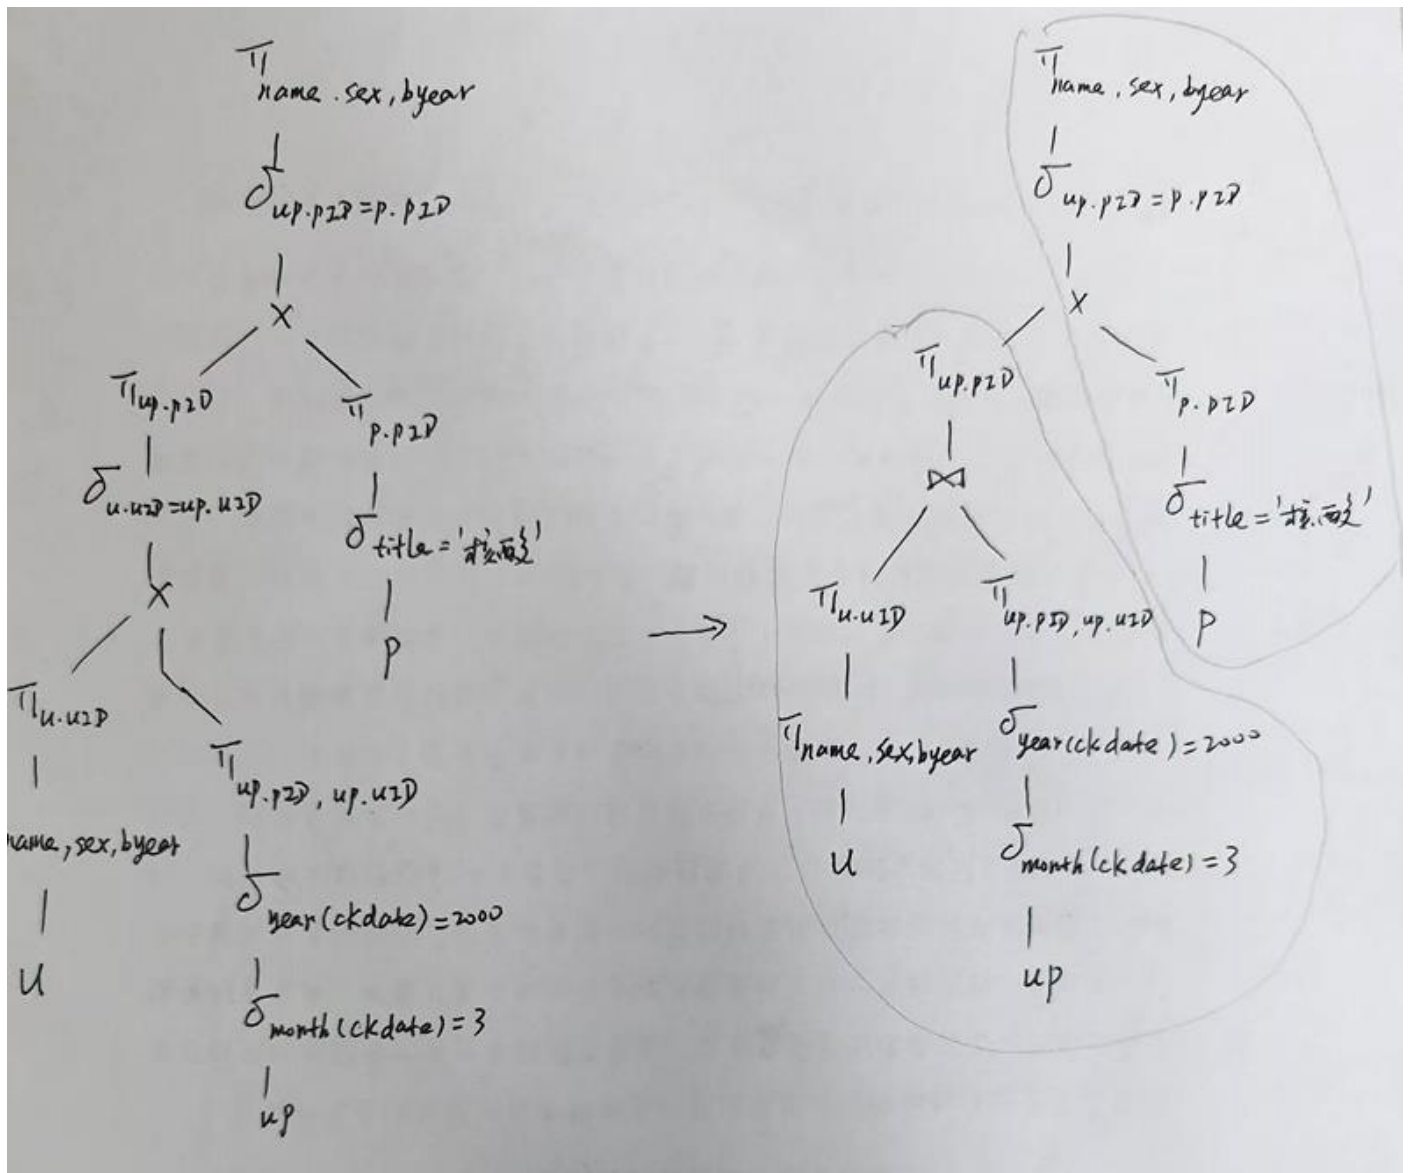 π name.sex,byear
δ up.pID=p.pID
×
π up.pID
π p.pID
δ u.uID=up.uID
δ title='核酸'
×
p
π u.uID
π up.pID, up.uID
name,sex,byear
δ year(ckdate)=2000
u
δ month(ckdate)=3
up
→
π name,sex,byear
δ up.pID=p.pID
×
π up.pID
π p.pID
⋈
δ title='核酸'
π u.uID
π up.pID, up.uID
p
π name,sex,byear
δ year(ckdate)=2000
u
δ month(ckdate)=3
up